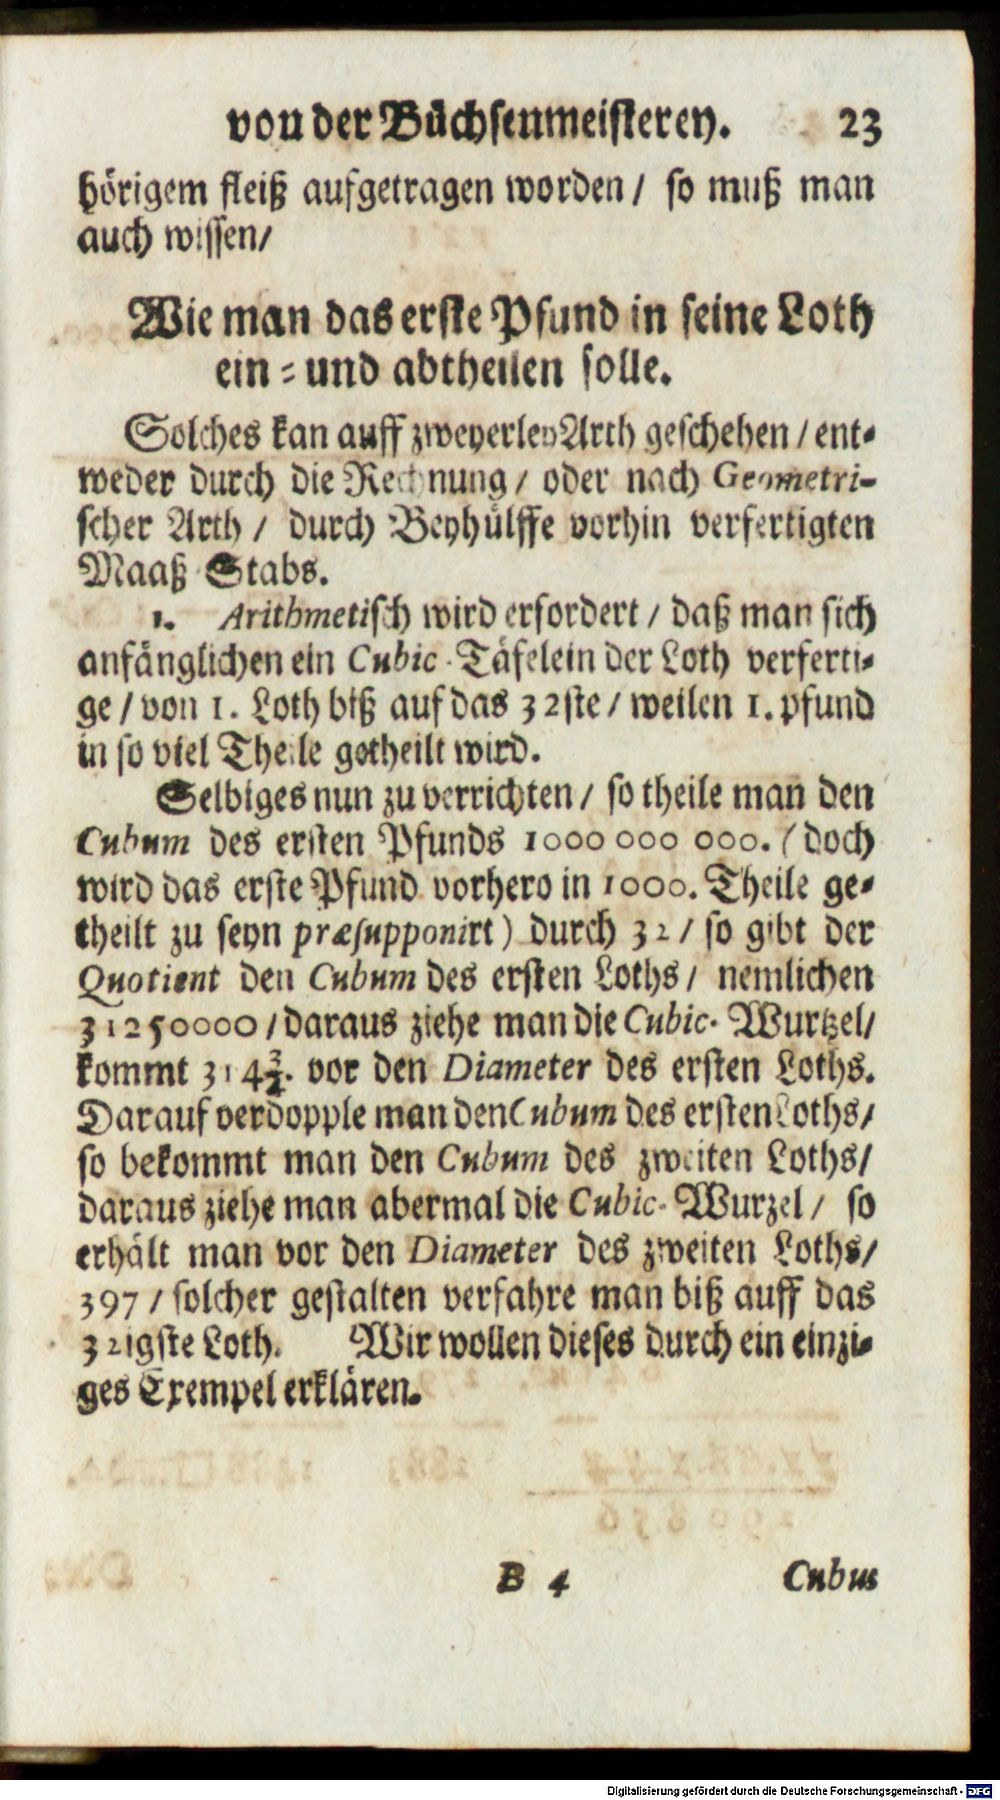 von der Büchsenmeisterey. 23
hörigem fleiß aufgetragen worden / so muß man
auch wissen/
Wie man das erste Pfund in seine Loth
ein- und abtheilen solle.
Solches kan auff zweyerley Arth geschehen / ent-
weder durch die Rechnung / oder nach Geometri-
scher Arth / durch Beyhülffe vorhin verfertigten
Maaß-Stabs.
1. Arithmetisch wird erfordert / daß man sich
anfänglichen ein Cubic-Täfelein der Loth verferti-
ge / von 1. Loth biß auf das 32ste / weilen 1. pfund
in so viel Theile getheilt wird.
Selbiges nun zu verrichten / so theile man den
Cubum des ersten Pfunds 1000 000 000. ( doch
wird das erste Pfund vorhero in 1000. Theile ge-
theilt zu seyn præsupponirt ) durch 32 / so gibt der
Quotient den Cubum des ersten Loths / nemlichen
31250000 / daraus ziehe man die Cubic-Wurtzel/
kommt 314¾. vor den Diameter des ersten Loths.
Darauf verdopple man den Cubum des ersten Loths/
so bekommt man den Cubum des zweiten Loths/
daraus ziehe man abermal die Cubic-Wurzel / so
erhält man vor den Diameter des zweiten Loths/
397 / solcher gestalten verfahre man biß auff das
32igste Loth. Wir wollen dieses durch ein einzi-
ges Exempel erklären.
B 4 Cubus
Digitalisierung gefördert durch die Deutsche Forschungsgemeinschaft - DFG